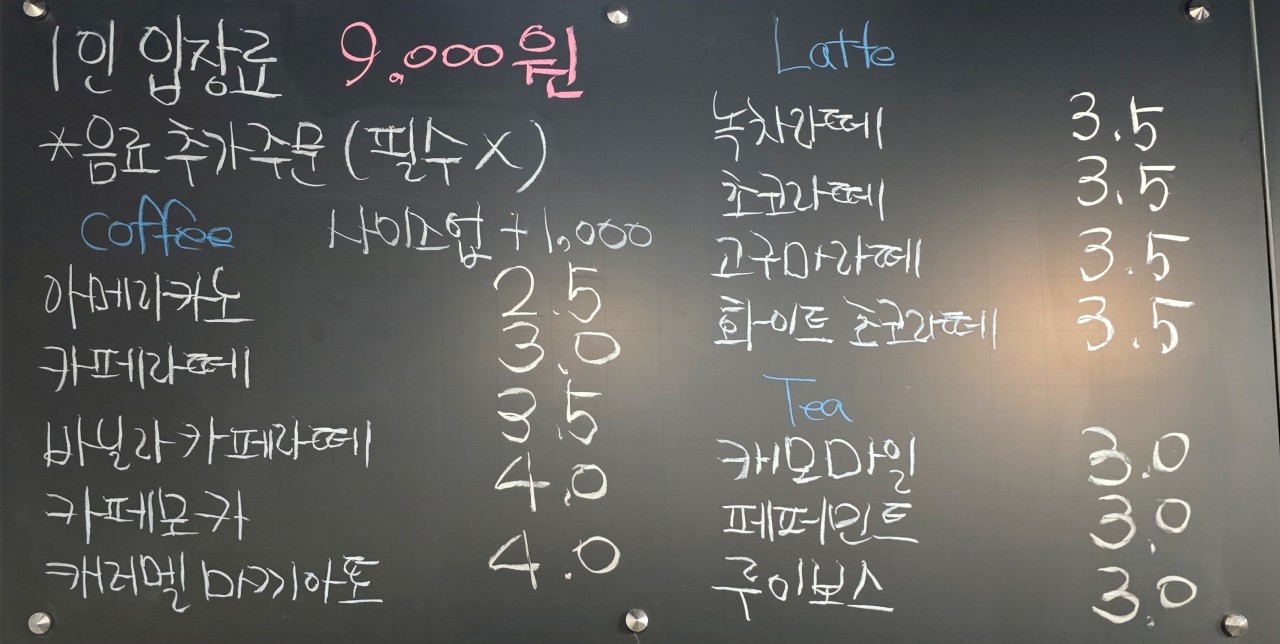 1인 입장료 9,000원
*음료 추가주문 (필수X)
coffee 사이즈업 +1,000
아메리카노 2.5
카페라떼 3.0
바닐라카페라떼 3.5
카페모카 4.0
캐러멜 마끼아또 4.0
Latte
녹차라떼 3.5
초코라떼 3.5
고구마라떼 3.5
화이트 초코라떼 3.5
Tea
캐모마일 3.0
페퍼민트 3.0
루이보스 3.0